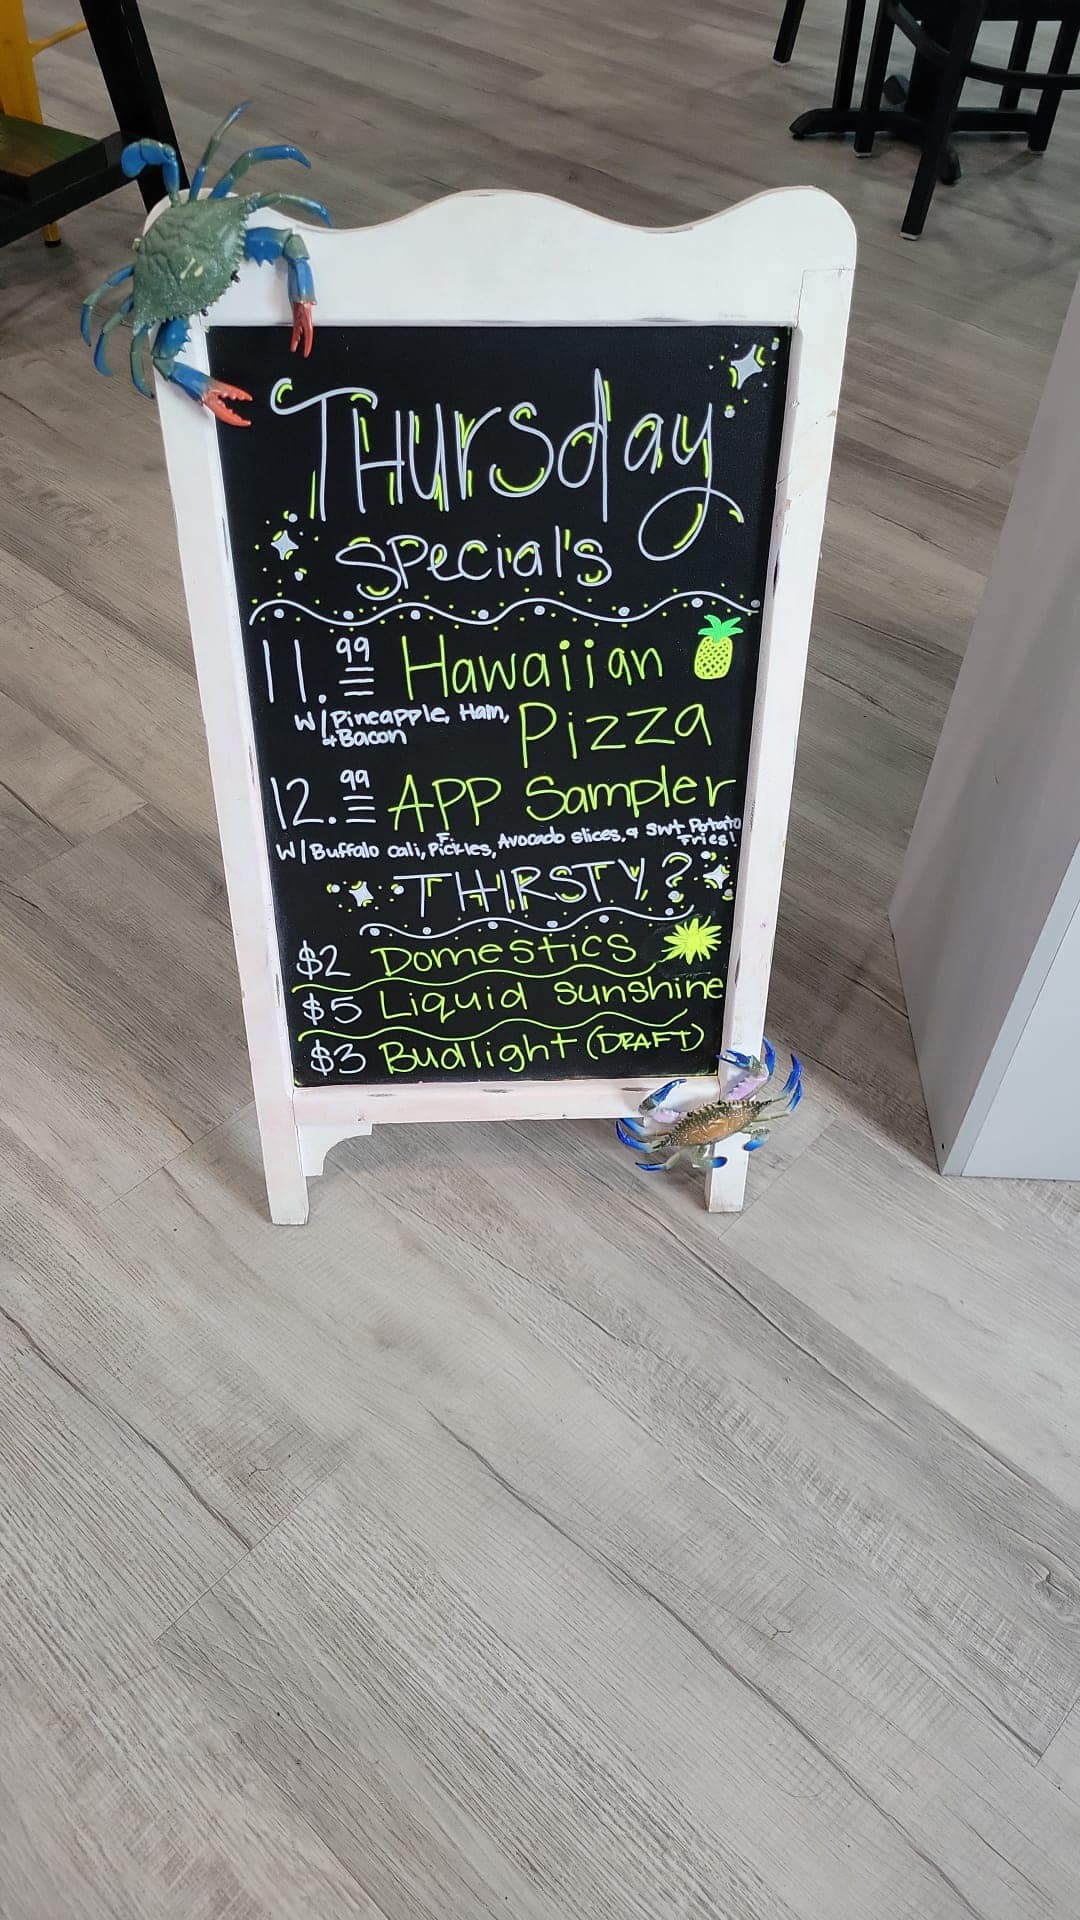 THursday
Specials's
11.99 Hawaiian
W/Pineapple, Ham, Pizza
+Bacon
12.99 APP Sampler
W/Buffalo Cali, F. Pickles, Avocado slices, & Swt Potato
Fries!
THIRSTY?
$2 Domestics
$5 Liquid Sunshine
$3 Budlight (DRAFT)